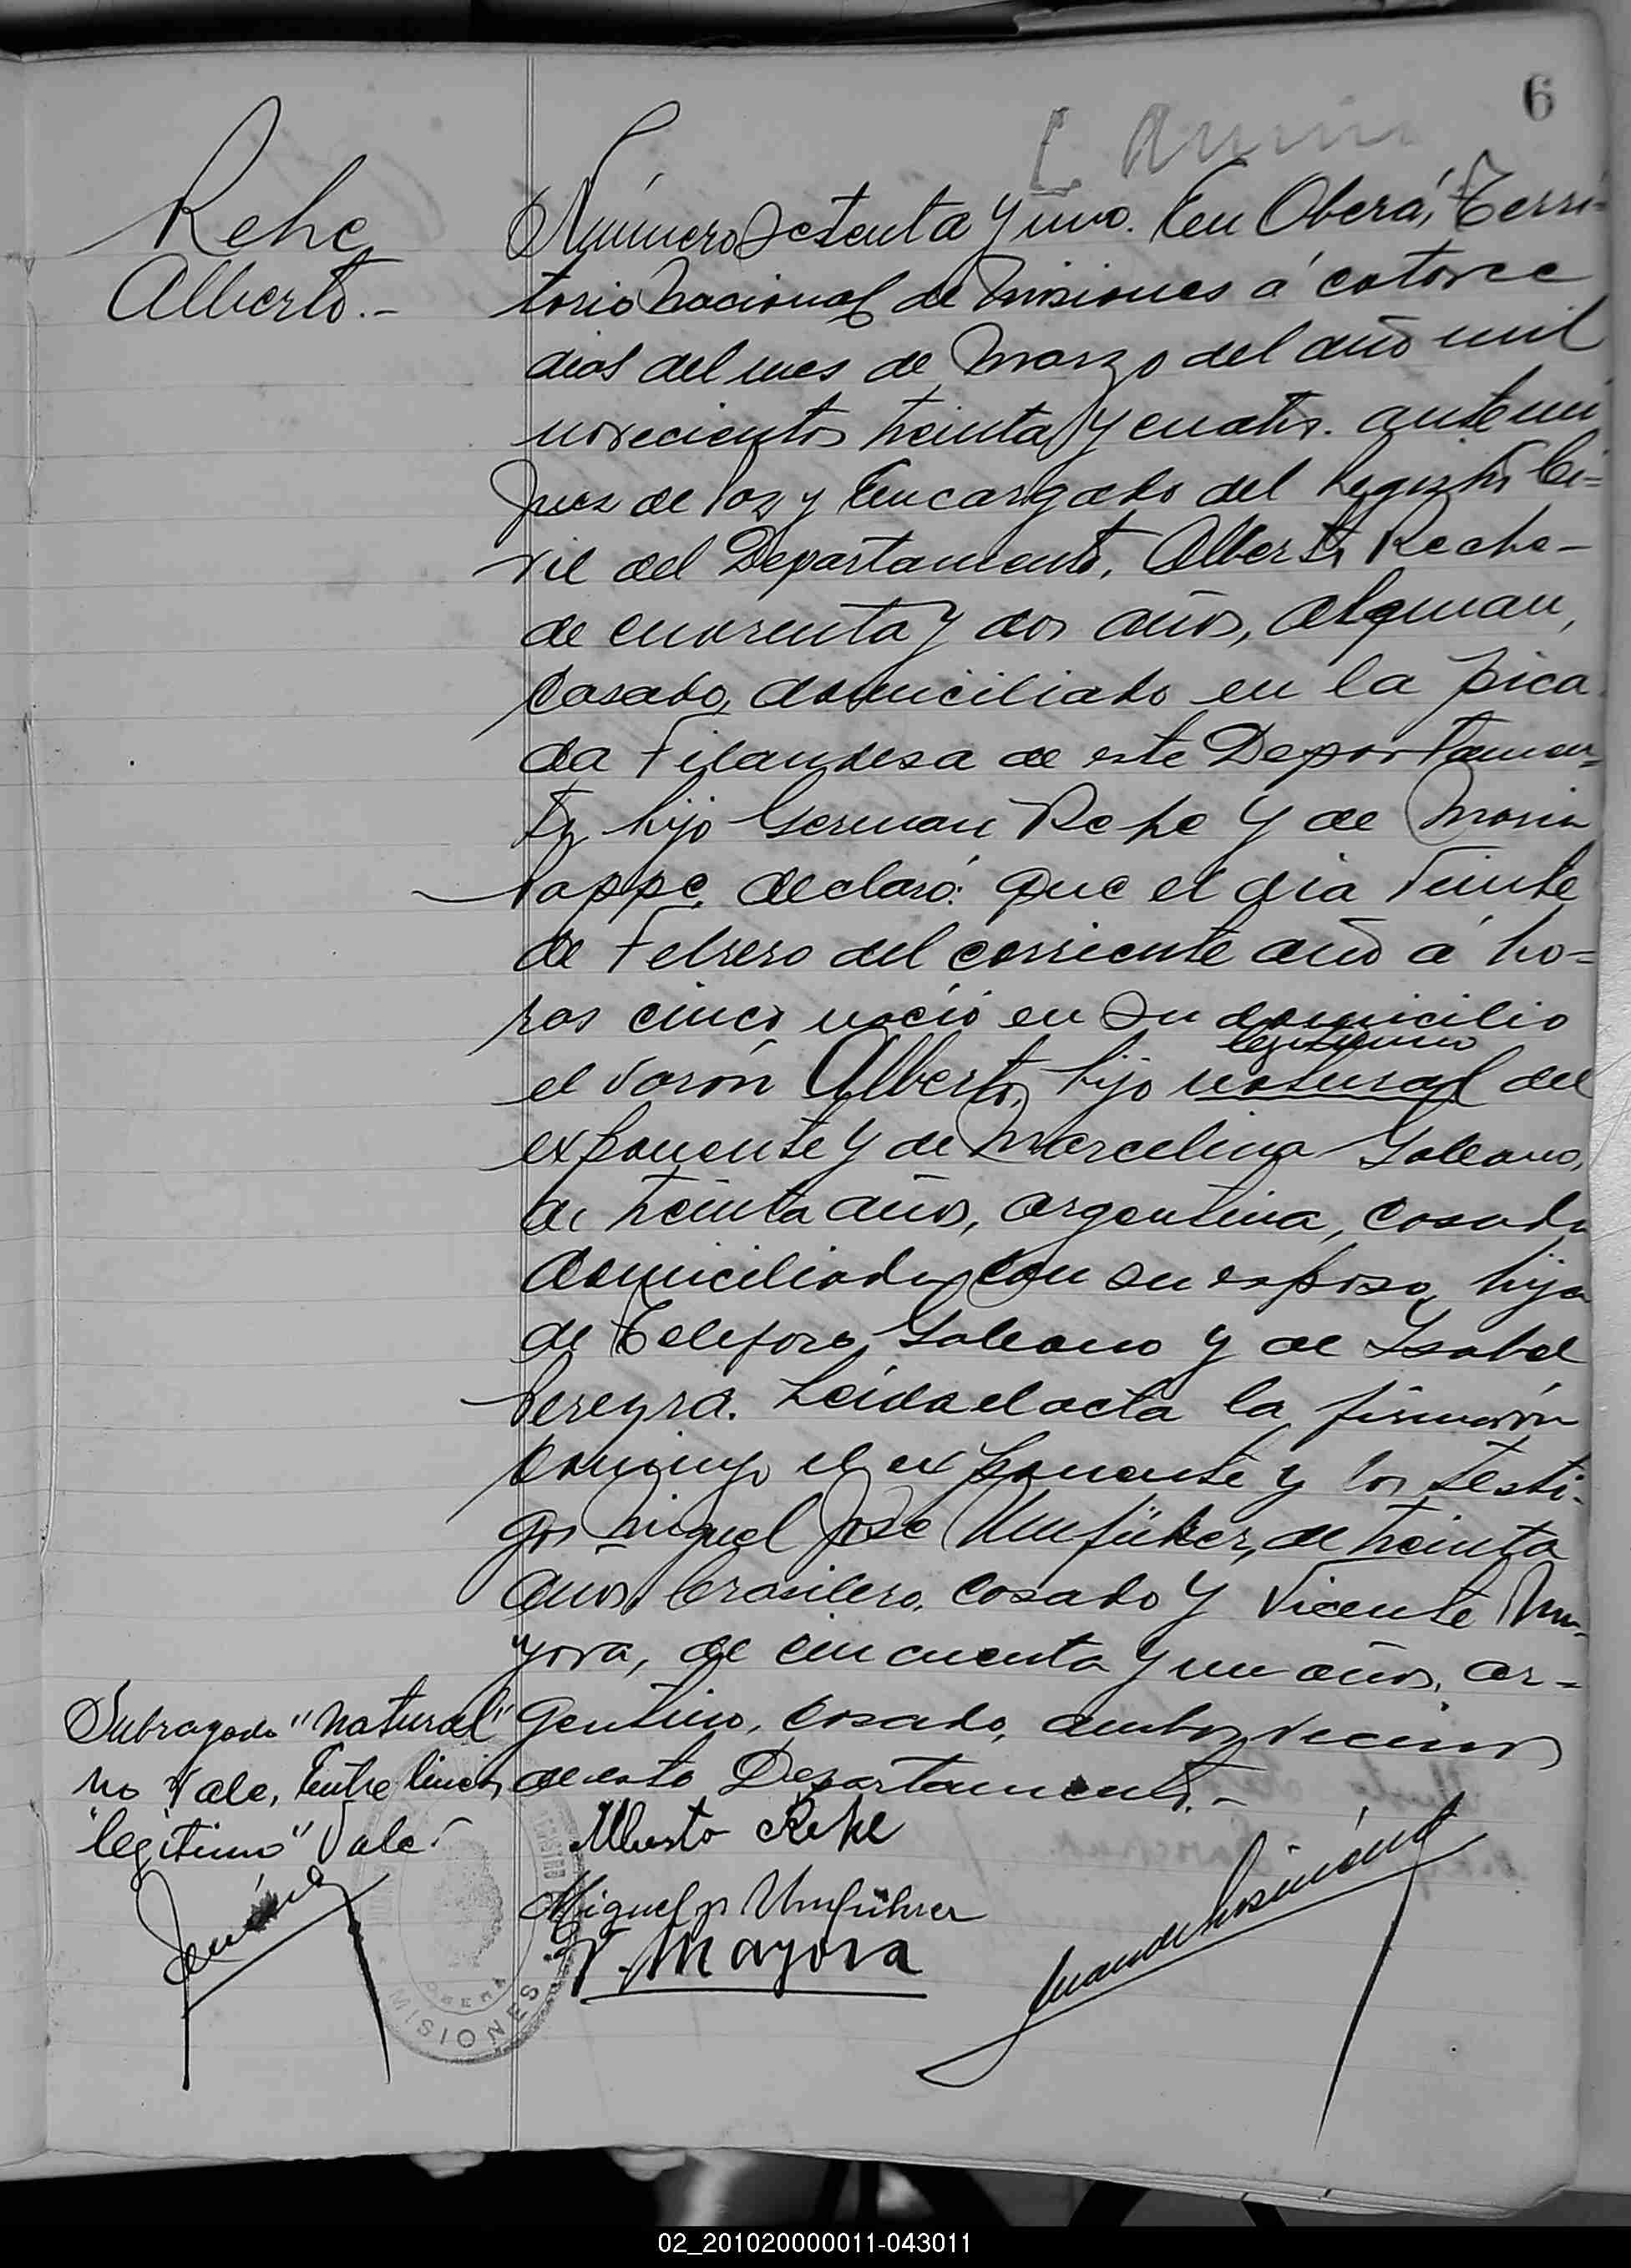 6
Rehe
Alberto.-
Número Setenta y uno. En Oberá, Terri=
torio Nacional de Misiones á catorce
dias del mes de Marzo del año mil
novecientos treinta y cuatro. ante mi
Juez de Paz y Encargado del Registro Ci=
vil del Departamento, Alberto Reche-
de cuarenta y dos años, aleman,
casado, domiciliado en la pica
da Filandesa de este Departamen=
to, hijo German Rehe y de Maria
Pappe, declaró: que el dia veinte
de Febrero del corriente año á ho=
ras cinco nació en su domicilio
legitimo
el varón Alberto, hijo natural del
exponente y de Marcelina Galeano,
de treinta años, argentina, casada
domiciliada con su esposo, hija
de Teleforo Galeano y de Ysabel
Pereyra. Leida el acta la firmarón
conmigo el exponente y los testi-
gos Miguel José Umfürer, de treinta
años, brasilero, casado y Vicente Ma-
yora, de cincuenta y un años, ar=
gentino, casado, ambos vecinos
de este Departamento.-
Subrayado "natural"
no vale, Entre lineas
"legitimo" Vale.-
Alberto Rehe
Miguel J. Umführer
V. Mayora
REGISTRO
OBERA
MISIONES
02_201020000011-043011